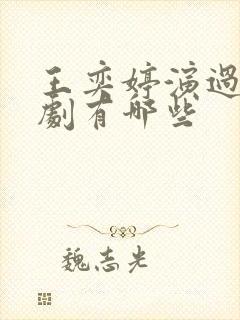 王奕婷演過
劇有哪些
魏志光